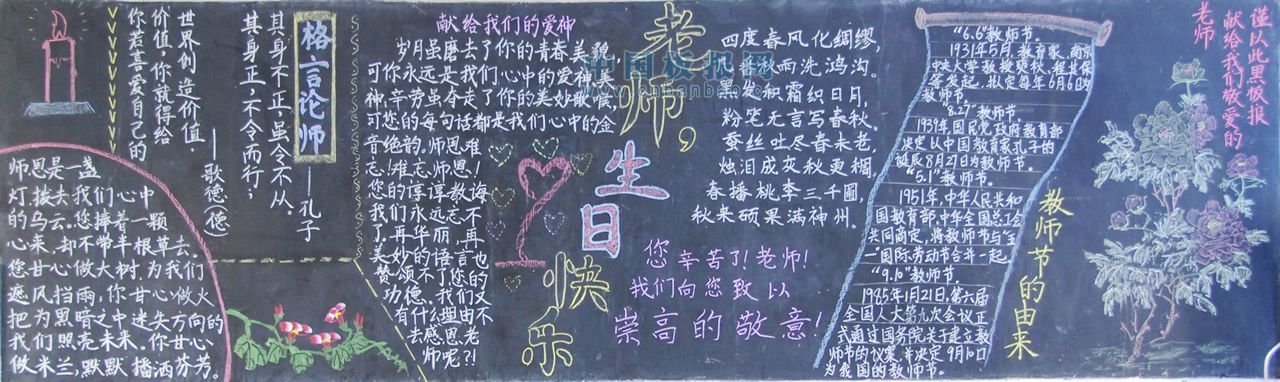 世界创造价值
价值你就得给
你若喜爱自己的
——歌德(德)
格言论师
其身不正,虽令不从。
其身正,不令而行;
——孔子
师恩是一盏
灯,拨去我们心中
的乌云.您捧着一颗
心来,却不带半根草去。
您甘心做大树,为我们
遮风挡雨,你甘心做火
把为黑暗之中迷失方向的
我们照亮未来.你甘心
做米兰,默默播洒芬芳。
献给我们的爱神
岁月虽磨去了你的青春美貌
可你永远是我们心中的爱神,美
神,辛劳虽夺走了你的美妙歌喉,
可您的每句话都是我们心中的金
音绝韵,师恩难
忘!难忘师恩!
您的谆谆教诲
我们永远忘不
了,再华丽,再
美妙的语言也
赞颂不了您的
功德。我们又
有什么理由不
去感恩老
师呢?!
老师,
生日
快乐
四度春风化绸缪,
几番秋雨洗鸿沟。
黑发积霜织日月,
粉笔无言写春秋。
蚕丝吐尽春未老,
烛泪成灰秋更稠。
春播桃李三千圃,
秋来硕果满神州.
您辛苦了!老师!
我们向您致以
崇高的敬意!
“6.6”教师节。
1931年5月,教育家,南京
中央大学教授
等发起,拟定每年6月6日为
教师节。
“8.27”教师节
1939年国民党政府教育部
决定以中国教育家孔子的
诞辰8月27日为教师节。
“5.1”教师节。
1951年,中华人民共和
国教育部,中华全国总工会
共同商定,将教师节与“五
一”国际劳动节合并一起
“9.10”教师节。
1985年1月21日,第六届
全国人大第九次会议正
式通过国务院关于建立教
师节的议案,并决定9月10日
为我国的教师节。
教师节的由来
谨以此黑板报
献给我们敬爱的
老师
中国板报网